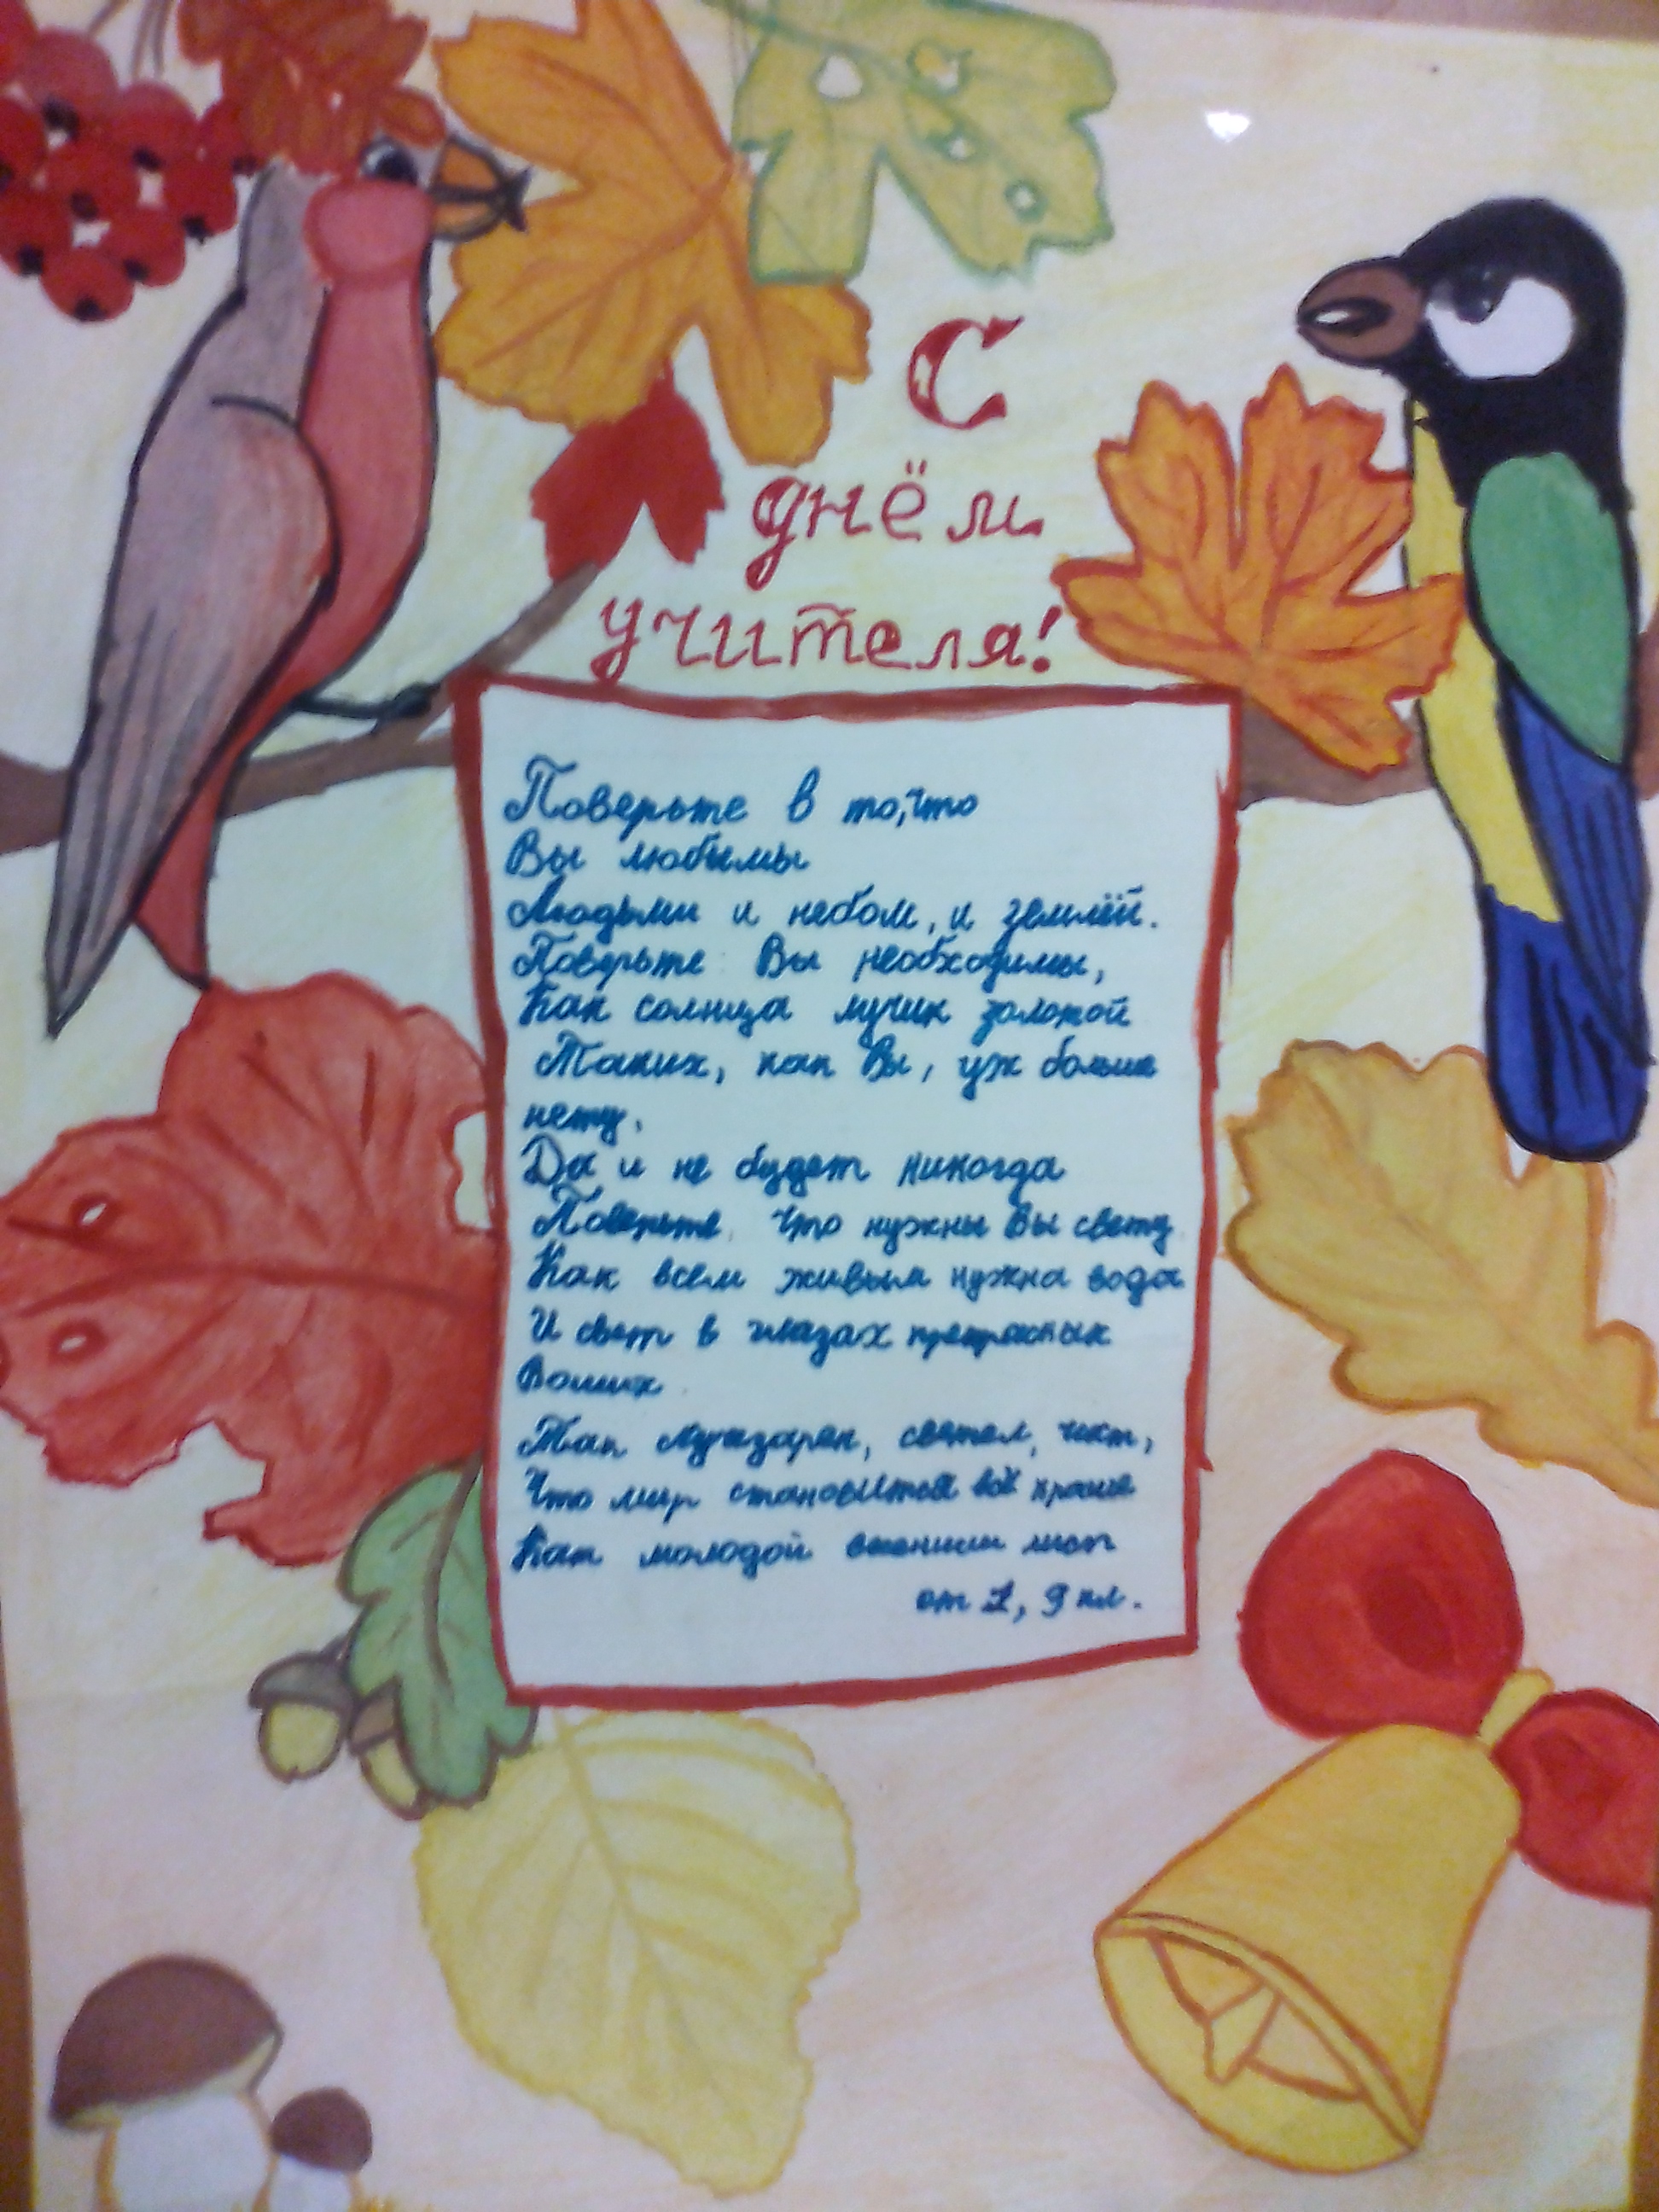 С
днём
учителя!
Поверьте в то, что
Вы любимы
Людьми и небом, и землёй.
Поверьте Вы необходимы,
Как солнца лучик золотой
Таких, как Вы, уж больше
нету.
Да и не будет никогда
Поверьте, что нужны Вы свету
Как всем живым нужна вода
И свет в глазах прекрасных
Ваших
Так лучезарен, светел, чист,
Что мир становится всё краше
Как молодой весенний лист
от 1, 9 кл.